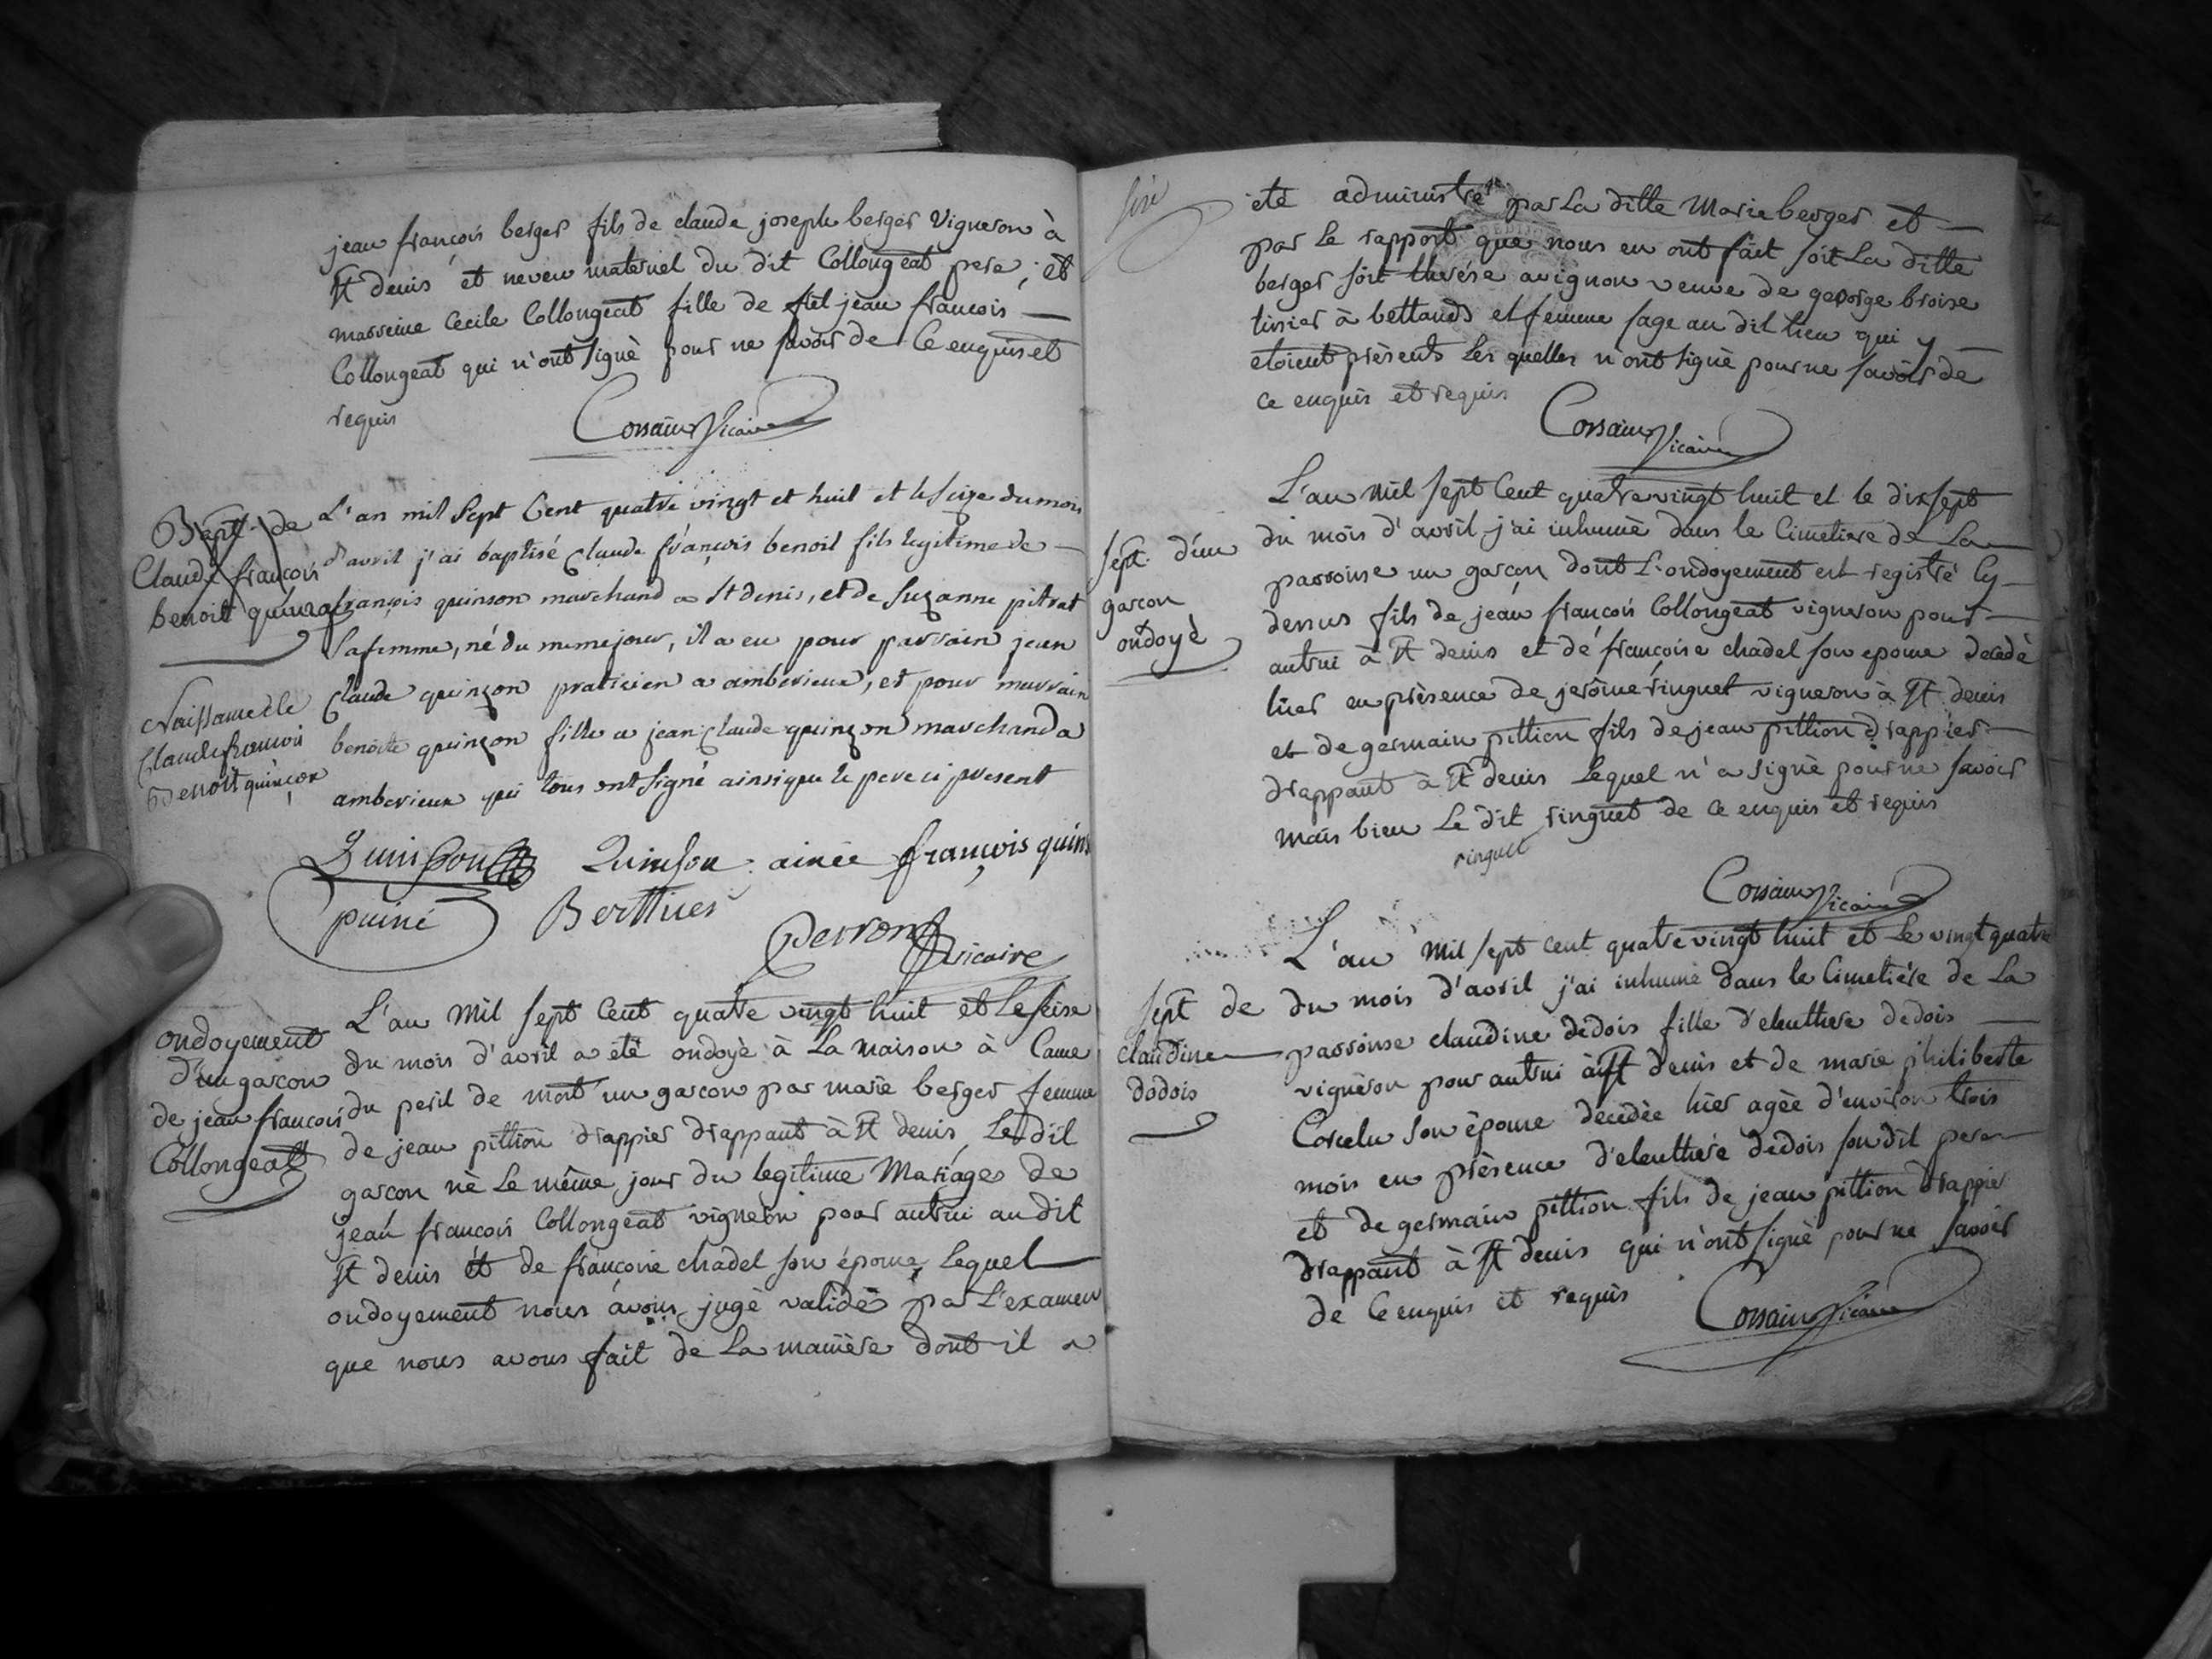 jean françois berger fils de claude joseph berger vigneron à
St denis et neveu maternel du dit Collongeat pere, et
marreine Cecile Collongeat fille de feu jean françois
Collongeat qui n'ont signè pour ne savoir de Ce enquis et
requis
Corsain Vicaire
Bapt. de
Claude françois
benoit quinson
Naissance de
Claude françois
Benoit quinçon
L'an mil Sept Cent quatre vingt et huit et le seize du mois
d'avril j'ai baptisé Claude françois benoit fils legitime de
françois quinson marchand a St denis, et de Suzanne pitrat
sa femme, né du meme jour, il a eu pour parrain jean
Claude quinçon praticien a amberieux, et pour marrain
benoite quinçon fille a jean Claude quinçon marchand a
amberieux qui tous ont signé ainsi que le pere ici present
Quinson Quinson ainée françois quins
puiné Berttues
Perron vicaire
ondoyement
d'un garcon
de jean françois
Collongeat
L'an mil sept Cent quatre vingt huit et le seise
du mois d'avril a etè ondoyè à La maison à Cause
du peril de mort un garcon par marie berger femme
de jean pittion drappier drappant à St denis, Le dit
garcon nè Le même jour du legitime Mariage de
jean françois Collongeat vigneron pour autrui au dit
St denis et de françoise chadel son épouse, Lequel
ondoyement nous avons jugè valide par L'examen
que nous avons fait de La manière dont il a
été administré par La ditte Marie berger et
par Le rapport que nous en ont fait soit La ditte
berger soit therése avignon veuve de george broise
tissier à bettands et femme sage au dit lieu qui y
etoient prèsents Les quelles n'ont signè pour ne savoir de
ce enquis et requis
Corsain Vicaire
Sept. d'un
garcon
ondoyè
L'an mil sept Cent quatre vingt huit et le dix sept
du mois d'avril j'ai inhumè dans le Cimetiere de La
parroisse un garcon dont L'ondoyement est registré Cy
dessus fils de jean françois Collongeat vigneron pour
autrui à St denis et de françoise chadel son epouse decedè
hier en prèsence de jerôme ringuet vigneron à St denis
et de germain pittion fils de jean pittion drappier
drappant à St denis Lequel n'a signè pour ne savoir
mais bien Le dit ringuet de ce enquis et requis
ringuet
Corsain Vicaire
Sept de
Claudine
dedois
L'an mil sept cent quatre vingt huit et Le vingt quatre
du mois d'avril j'ai inhumè dans le Cimetière de La
parroisse claudine dedois fille d'eleuthere dedois
vigneron pour autrui à St denis et de marie philiberte
Corcelu son èpouse decedèe hier agèe d'environ trois
mois en prèsence d'eleuthere dedois son dit pere
et de germain pittion fils de jean pittion drappier
drappant à St denis qui n'ont signè pour ne savoir
de Ce enquis et requis
Corsain Vicaire